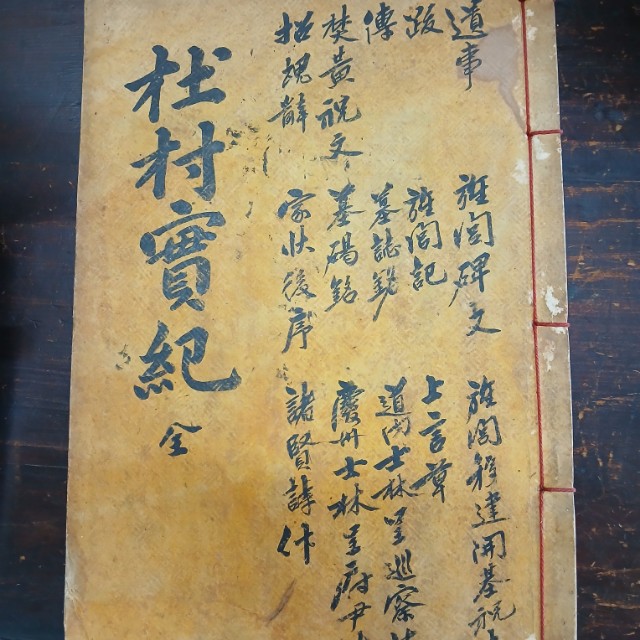 杜村實紀
全
遺事
跋
傳
焚黃祝文
招魂辭
旌閭碑文
旌閭記
墓誌銘
墓碣銘
家狀後序
旌閭移建開基祝
上言草
道內士林呈巡察
慶州士林呈府尹
諸賢詩什